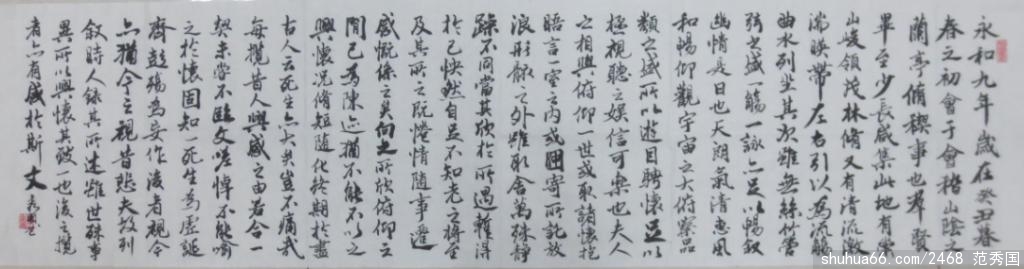 永和九年歲在癸丑暮
春之初會于會稽山陰之
蘭亭脩稧事也群賢
畢至少長咸集此地有崇
山峻領茂林脩又有清流激
湍暎帶左右引以為流觴
曲水列坐其次雖無絲竹管
弦之盛一觴一詠亦足以暢叙
幽情是日也天朗氣清惠風
和暢仰觀宇宙之大俯察品
類之盛所以遊目騁懷足以
極視聽之娛信可樂也夫人
之相與俯仰一世或取諸懷抱
晤言一室之內或因寄所託放
浪形骸之外雖取舍萬殊靜
躁不同當其欣於所遇暫得
於己怏然自足不知老之將至
及其所之既惓情隨事遷
感慨係之矣向之所欣俯仰之
閒已為陳迹猶不能不以之
興懷況脩短隨化終期於盡
古人云死生亦大矣豈不痛哉
每攬昔人興感之由若合一
契未嘗不臨文嗟悼不能喻
之於懷固知一死生為虛誕
齊彭殤為妄作後者視今
亦猶今之視昔悲夫故列
叙時人錄其所述雖世殊事
異所以興懷其致一也後之攬
者亦有感於斯文
shuhua66.com/2468 范秀国